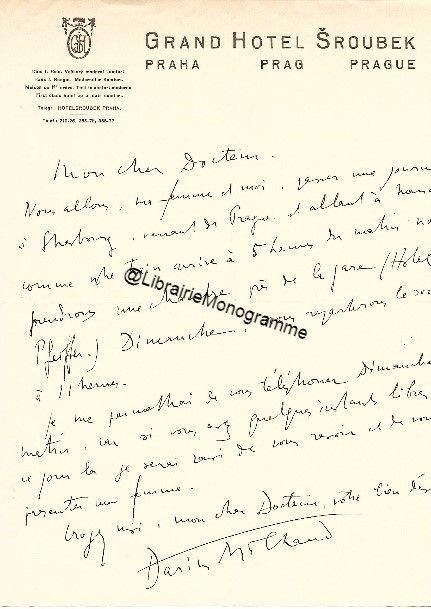 GRAND HOTEL ŠROUBEK
PRAHA PRAG PRAGUE
Telegr. HOTELSROUBEK PRAHA.
Mon cher Docteur.
Nous allons, ma femme et moi, passer une journ
à Strasbourg, venant de Prague et allant à
comme notre train arrive à 5 heures du matin no
prendrons une chambre près de la gare (Hotel
Pfeiffer.) Dimanche, nous repartirons le soir
à 11 heures.
je me permettrai de vous téléphoner Dimanche
matin, car si vous avez quelques instants libres
ce jour là je serai ravi de vous revoir et de vous
présenter ma femme.
Croyez moi, mon cher Docteur, votre bien dév
Darius Milhaud
@LibrairieMonogramme